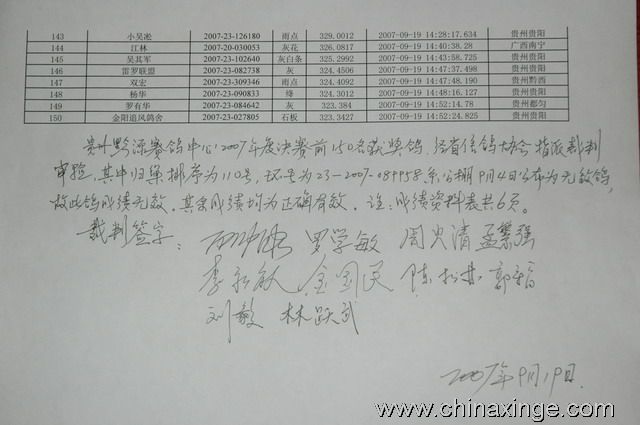 143 小吴淞 2007-23-126180 雨点 329.0012 2007-09-19 14:28:17.634 贵州贵阳
144 江林 2007-20-030053 灰花 326.0817 2007-09-19 14:40:38.28 广西南宁
145 吴其军 2007-23-102640 灰白条 325.2992 2007-09-19 14:43:58.725 贵州贵阳
146 雷罗联盟 2007-23-082738 灰 324.4506 2007-09-19 14:47:37.498 贵州贵阳
147 双宏 2007-23-309346 雨点 324.4092 2007-09-19 14:47:48.190 贵州黔西
148 杨华 2007-23-090833 绛 324.3012 2007-09-19 14:48:16.127 贵州贵阳
149 罗有华 2007-23-084642 灰 323.384 2007-09-19 14:52:14.78 贵州都匀
150 金阳追风鸽舍 2007-23-027805 石板 323.3427 2007-09-19 14:52:24.825 贵州贵阳
贵州黔源赛鸽中心2007年度决赛前150名获奖鸽,经省信鸽协会指派裁判
审验,其中归巢排序为110号,环号为23-2007-089958系公棚9月4日公布为无效鸽,
故此鸽成绩无效。其余成绩均为正确有效。注:成绩资料表共6页。
裁判签字: 罗学敏 周火清 孟繁强
李 敏 金国民 陈
刘毅 林跃武
2007年9月19日
www.chinaxinge.com